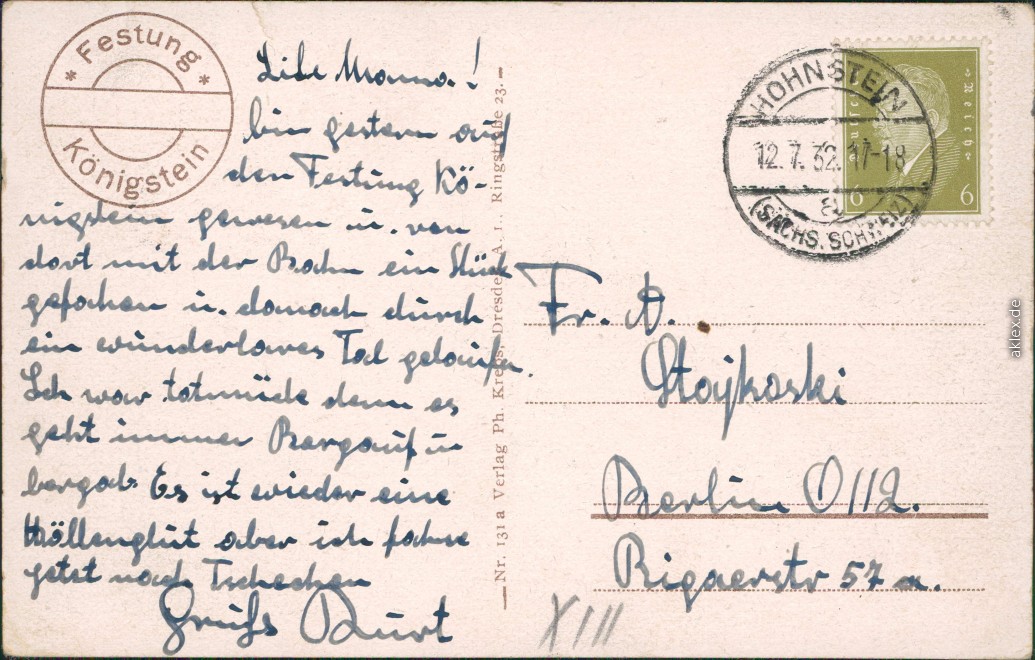 * Festung *
Königstein
Liebe Mama!
bin gestern auf
der Festung Kö-
nigstein gewesen u. von
dort mit der Bahn ein Stück
gefahren u. danach durch
ein wunderbares Tal gelaufen.
Ich war totmüde denn es
geht immer Bergauf u
bergab. Es ist wieder eine
Höllenglut aber ich fahre
jetzt nach Tschechen
Gruß Kurt
Nr. 131 a Verlag Ph. Krebs, Dresden A. 1., Ringstraße 23.
HOHNSTEIN
12.7.32.17-18
a
(SÄCHS. SCHWEIZ)
Deutsches Reich
6 6
Fr. A.
Stajkoski
Berlin O112.
Rigaerstr 57 a.
XIII
aklex.de